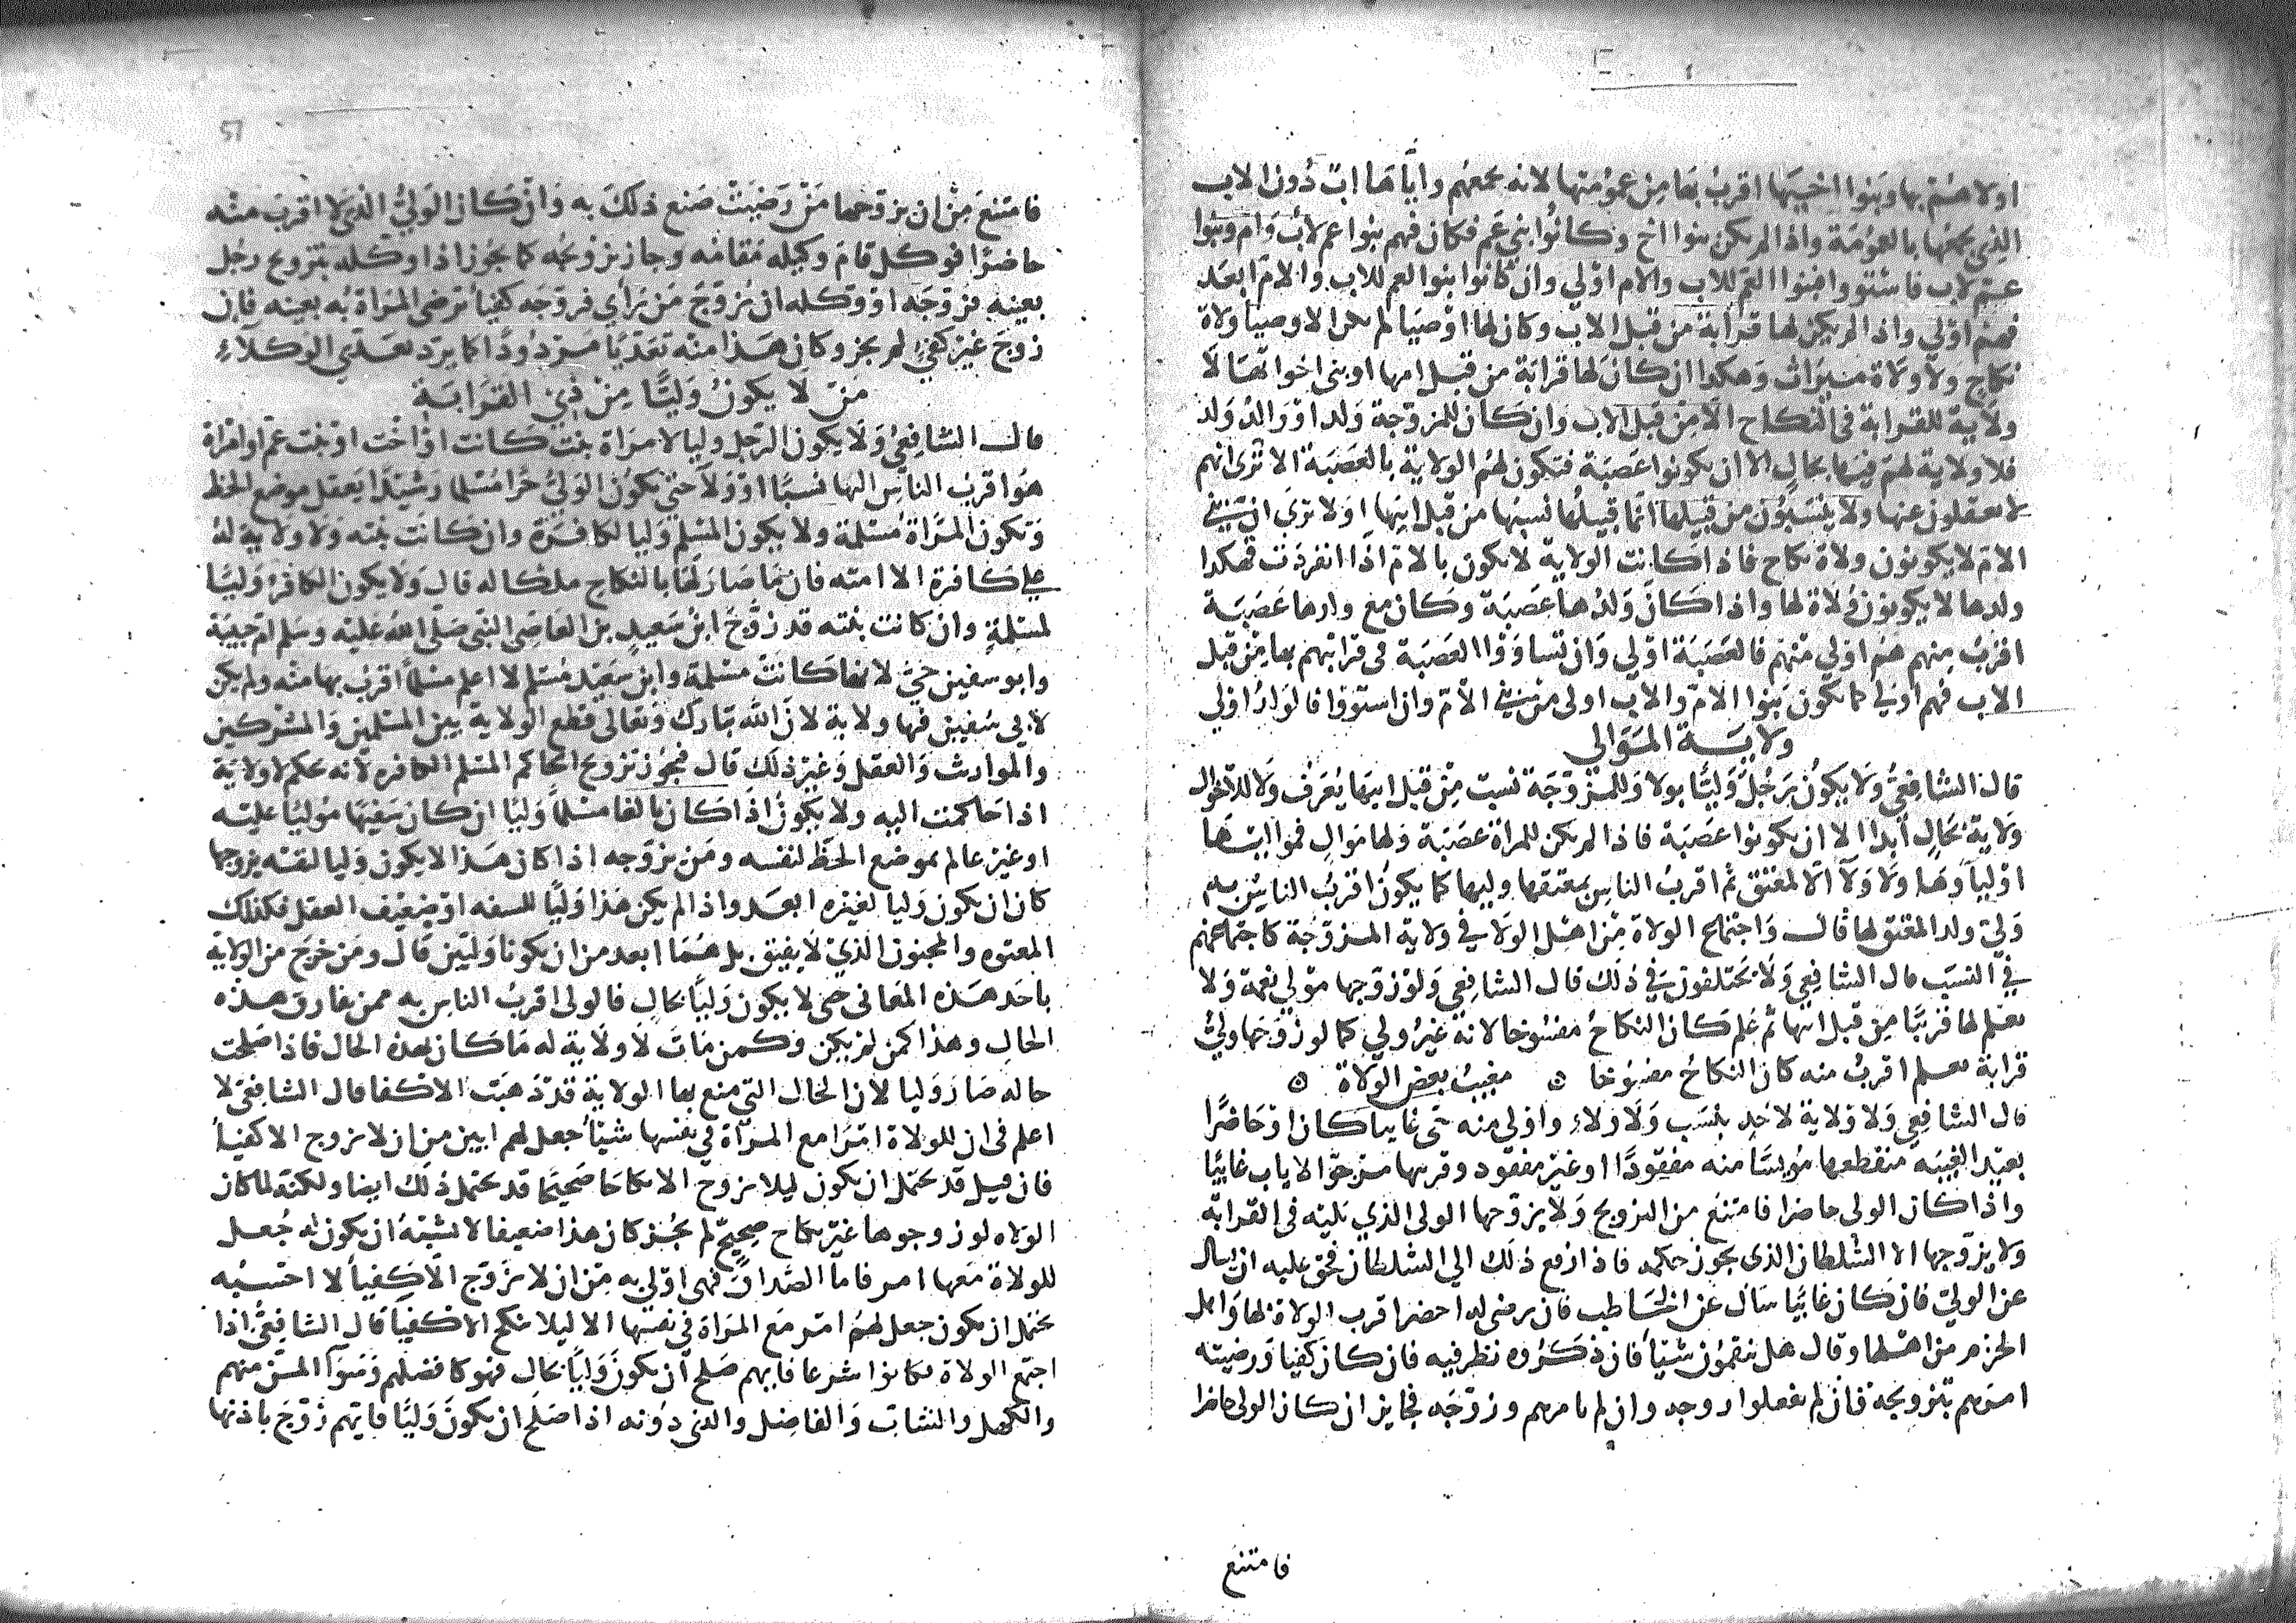 اولاهم بها وبنوا اخيها اقرب بها من عمومتها لانه يجمعهم واياها اب دون الاب
الذي يجمعها بالعمومة واذا لم يكن بنوا اخ وكانوا بني عم فكان فيهم بنوا عم لاب وام وبنوا
عم لاب فاستووا فبنوا العم للاب والام اولي وان كانوا بنوا العم للاب والام ابعد
فهم اولي واذا لم يكن لها قرابة من قبل الاب وكان لها اوصيا لم يكن الاوصيا ولاة
نكاح ولا ولاة ميراث وهكذا ان كان لها قرابة من قبل امها او بني اخواتها لا
ولاية للقرابة في النكاح الا من قبل الاب وان كان للمزوجة ولد او والد ولد
فلا ولاية لهم فيها بحال الا ان يكونوا عصبة فتكون لهم الولاية بالعصبة الا تري انهم
لا يعقلون عنها ولا ينتسبون من قبيلها انما قبيلها نسبها من قبل ابيها اولا تري ان بني
الام لا يكونون ولاة نكاح فاذا كانت الولاية لا يكون بالام اذا انفردت فهكدا
ولدها لا يكونون ولاة لها واذا كان ولدها عصبة وكان مع ولدها عصبة
اقرب منهم هم اولي منهم فالعصبة اولي وان تساووا العصبة في قرابتهم بها من قبل
الاب فهم اولي كما يكون بنوا الام والاب اولى من بني الام وان استووا فالولد اولي
ولاية الموالي
قال الشافعي ولا يكون رجل وليا بولا وللمزوجة نسب من قبل ابيها يعرف ولا للاخوال
ولاية بحال ابدا الا ان يكونوا عصبة فاذا لم يكن للمراة عصبة ولها موال فمواليها
اولياوها ولا ولا الا لمعتق ثم اقرب الناس بمعتقها وليها كما يكون اقرب الناس به
ولي ولد المعتق لها قال واجتماع الولاة من اهل الولا في ولاية المزوجة كاجتماعهم
في النسب قال الشافعي ولا يختلفون في ذلك قال الشافعي ولو زوجها مولي نعمة ولا
يعلم لها قريبا من قبل ابيها ثم علم كان النكاح مفسوخا لانه غير ولي كما لو زوجها ولي
قرابة يعلم اقرب منه كان النكاح مفسوخا ۞ مغيب بعض الولاة ۞
قال الشافعي ولا ولاية لاحد بنسب ولا ولاء واولي منه حي غايبا كان او حاضرا
بعيد الغيبه منقطعها مويسا منه مفقودا او غير مفقود وقريبها مرجوا الاياب غائبا
واذا كان الولي حاضرا فامتنع من التزويج ولا يزوجها الولي الذي يليه في القرابة
ولا يزوجها الا السلطان الذي يجوز حكمه فاذا رفع ذلك الي السلطان فحق عليه ان يسال
عن الولي فان كان غائبا سال عن الخاطب فان رضي له احضر اقرب الولاة لها واهل
الحزم من اهلها وقال هل تنقمون شيا فان ذكروه نظر فيه فان كان كفيا ورضيته
امرهم بتزويجه فان لم يفعلوا زوجه وان لم يامرهم وزوجه فجايز ان كان الولي حاضرا
فامتنع
51
فامتنع من ان يزوجها من رضيت صنع ذلك به وان كان الولي الذي لا اقرب منه
حاضرا فوكل قام وكيله مقامه وجاز تزويجه كما يجوز اذا وكله بتزويج رجل
بعينه فزوجه او وكله ان يزوج من رأي فزوجه كفيا ترضى المراة به بعينه فان
زوج غير كفي لم يجز وكان هذا منه تعديا مردودا كما يرد تعدي الوكلاء
من لا يكون وليا من ذي القرابة
قال الشافعي ولا يكون الرجل وليا لامراة بنت كانت او اخت او بنت عم او امراة
هو اقرب الناس اليها نسبا او ولا حتى يكون الولي حرا مسلما رشيدا يعقل موضع الحظ
وتكون المراة مسلمة ولا يكون المسلم وليا لكافرة وان كانت بنته ولا ولاية له
علي كافرة الا امته فان ما صار لها بالنكاح ملك له قال ولا يكون الكافر وليا
لمسلمة وان كانت بنته قد زوج ابن سعيد بن العاصي النبي صلى الله عليه وسلم ام حبيبة
وابو سفين حي لانها كانت مسلمة وابن سعيد مسلم لا اعلم مسلما اقرب بها منه ولم يكن
لابي سفين فيها ولاية لان الله تبارك وتعالى قطع الولاية بين المسلمين والمشركين
والموارث والعقل وغير ذلك قال فيجوز تزويج الحاكم المسلم الكافره لانه حكم لا ولاية
اذا حاكمت اليه ولا يكون اذا كان بالغا مسلما وليا ان كان سفيها موليا عليه
او غير عالم بموضع الحظ لنفسه ومن يزوجه اذا كان هذا لا يكون وليا لنفسه يزوجها
كان ان يكون وليا لغيره ابعد واذا لم يكن هذا وليا للسفه او ضعيف العقل فكذلك
المعتوه والمجنون الذي لا يفيق بل هما ابعد من ان يكونا وليين قال ومن خرج من الولاية
باحد هذه المعاني حتي لا يكون وليا بحال فالولي اقرب الناس به ممن يفارق هذه
الحال وهذا كمن لم يكن وكمن مات لا ولاية له ما كان بهذه الحال فاذا صلحت
حاله صار وليا لان الحال التي منع بها الولاية قد ذهبت الاكفا قال الشافعي لا
اعلم في ان للولاة امرا مع المراة في نفسها شيأ جعل لهم ابين من ان لا تزوج الا كفيا
فان قيل قد يحتمل ان يكون ليلا يزوج الا نكاحا صحيحا قد يحتمل ذلك ايضا ولكنه لما كان
الولاه لو زوجوها غير نكاح صحيح لم يجز كان هذا ضعيفا لا يشبه ان يكون له جعل
للولاة معها امر فاما الصداق فهي اولي به من ان لا تزوج الا كفيا لا احسبه
يحتمل ان يكون جعل لهم امر مع المراة في نفسها الا ليلا تنكح الا كفيا قال الشافعي اذا
اجتمع الولاة فكانوا شرعا فايهم صلح ان يكون وليا بحال فهو كافضلهم وسوآ المسن منهم
والكهل والشاب والفاضل والذي دونه اذا صلح ان يكون وليا فايهم زوج باذنها